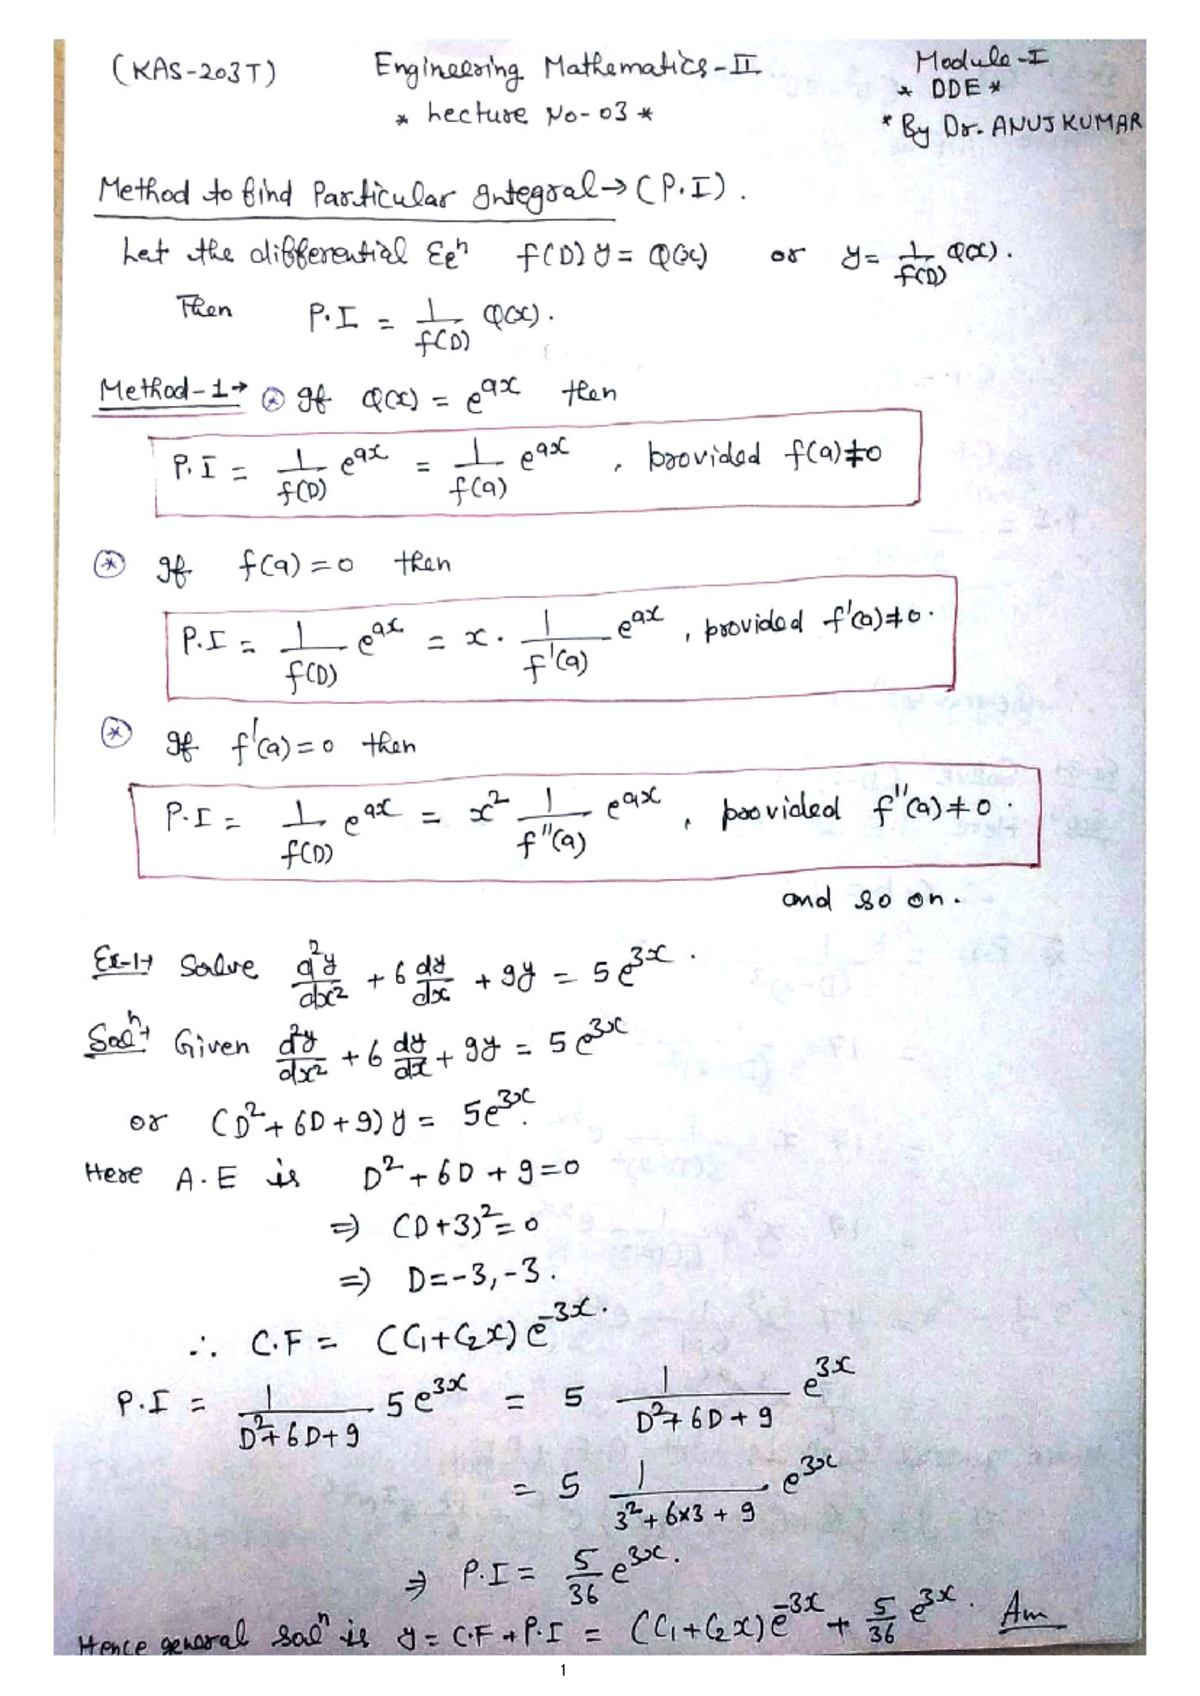 (KAS-203T) Engineering Mathematics-II Module-I
* Lecture No-03 * * ODE *
* By Dr. ANUJ KUMAR
Method to find Particular Integral → (P.I).
Let the differential Eqⁿ f(D) y = Q(x) or y = 1/f(D) Q(x).
Then P.I = 1/f(D) Q(x).
Method-1 → * If Q(x) = e^{ax} then
P.I = 1/f(D) e^{ax} = 1/f(a) e^{ax}, provided f(a)≠0
* If f(a) = 0 then
P.I = 1/f(D) e^{ax} = x · 1/f'(a) e^{ax}, provided f'(a)≠0.
* If f'(a) = 0 then
P.I = 1/f(D) e^{ax} = x² 1/f''(a) e^{ax}, provided f''(a)≠0.
and so on.
Ex-1→ Solve d²y/dx² + 6 dy/dx + 9y = 5e^{3x}.
Solⁿ→ Given d²y/dx² + 6 dy/dx + 9y = 5e^{3x}
or (D² + 6D + 9) y = 5e^{3x}.
Here A.E is D² + 6D + 9 = 0
⇒ (D+3)² = 0
⇒ D = -3, -3.
∴ C.F = (C₁+C₂x) e^{-3x}.
P.I = 1/(D²+6D+9) 5e^{3x} = 5 1/(D²+6D+9) e^{3x}
= 5 1/(3²+6×3+9) e^{3x}
⇒ P.I = 5/36 e^{3x}.
Hence general solⁿ is y = C.F + P.I = (C₁+C₂x) e^{-3x} + 5/36 e^{3x}. Ans
1